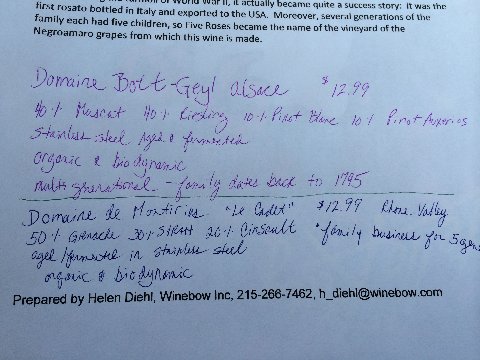 it actually became quite a success story: It was the
first rosato bottled in Italy and exported to the USA. Moreover, several generations of the
family each had five children, so Five Roses became the name of the vineyard of the
Negroamaro grapes from which this wine is made.
Domaine Bott-Geyl Alsace $12.99
40% Muscat 40% Riesling 10% Pinot Blanc 10% Pinot Auxerois
Stainless steel aged & fermented
organic & biodynamic
multi generational - family dates back to 1795
Domaine de Montirius "Le Cadet" $12.99 Rhone Valley
50% Grenache 30% Syrah 20% Cinsault *family business for 5 gens
aged/fermented in stainless steel
organic & biodynamic
Prepared by Helen Diehl, Winebow Inc, 215-266-7462, h_diehl@winebow.com